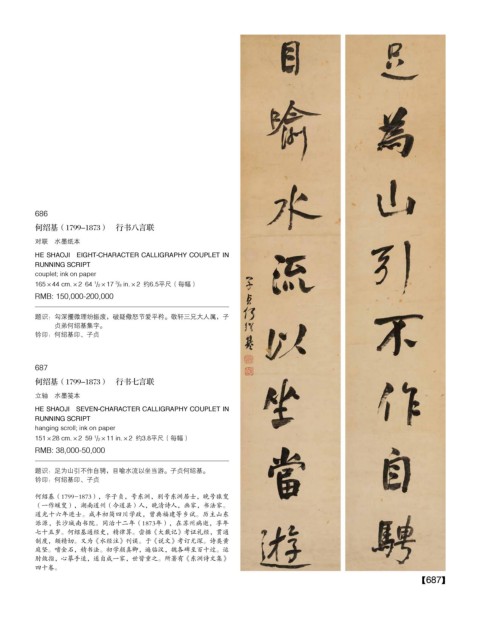 686
何绍基（1799–1873）　行书八言联
对联　水墨纸本
HE SHAOJI　EIGHT-CHARACTER CALLIGRAPHY COUPLET IN
RUNNING SCRIPT
couplet; ink on paper
165×44 cm.×2  64 1/2×17 3/8 in.×2  约6.5平尺（每幅）
RMB: 150,000-200,000
题识：勾深攫微理纷振废，破疑徵怒节爱平矜。敬轩三兄大人属，子
贞弟何绍基集字。
钤印：何绍基印、子贞
687
何绍基（1799–1873）　行书七言联
立轴　水墨笺本
HE SHAOJI　SEVEN-CHARACTER CALLIGRAPHY COUPLET IN
RUNNING SCRIPT
hanging scroll; ink on paper
151×28 cm.×2  59 1/2×11 in.×2  约3.8平尺（每幅）
RMB: 38,000-50,000
题识：足为山引不作自骋，目喻水流以坐当游。子贞何绍基。
钤印：何绍基印、子贞
何绍基（1799-1873），字子贞，号东洲，别号东洲居士，晚号蝯叟
（一作猨叟），湖南道州（今道县）人，晚清诗人、画家、书法家。
道光十六年进士。咸丰初简四川学政，曾典福建等乡试。历主山东
泺源、长沙城南书院。同治十二年（1873年），在苏州病逝，享年
七十五岁。何绍基通经史，精律算。尝据《大戴记》考证礼经，贯通
制度，颇精切。又为《水经注》刊误。于《说文》考订尤深。诗类黄
庭坚。嗜金石，精书法。初学颜真卿，遍临汉、魏各碑至百十过。运
肘敛指，心摹手追，遂自成一家，世皆重之。所著有《东洲诗文集》
四十卷。
足為山引不作自騁
目喻水流以坐當遊
子貞何紹基
【687】